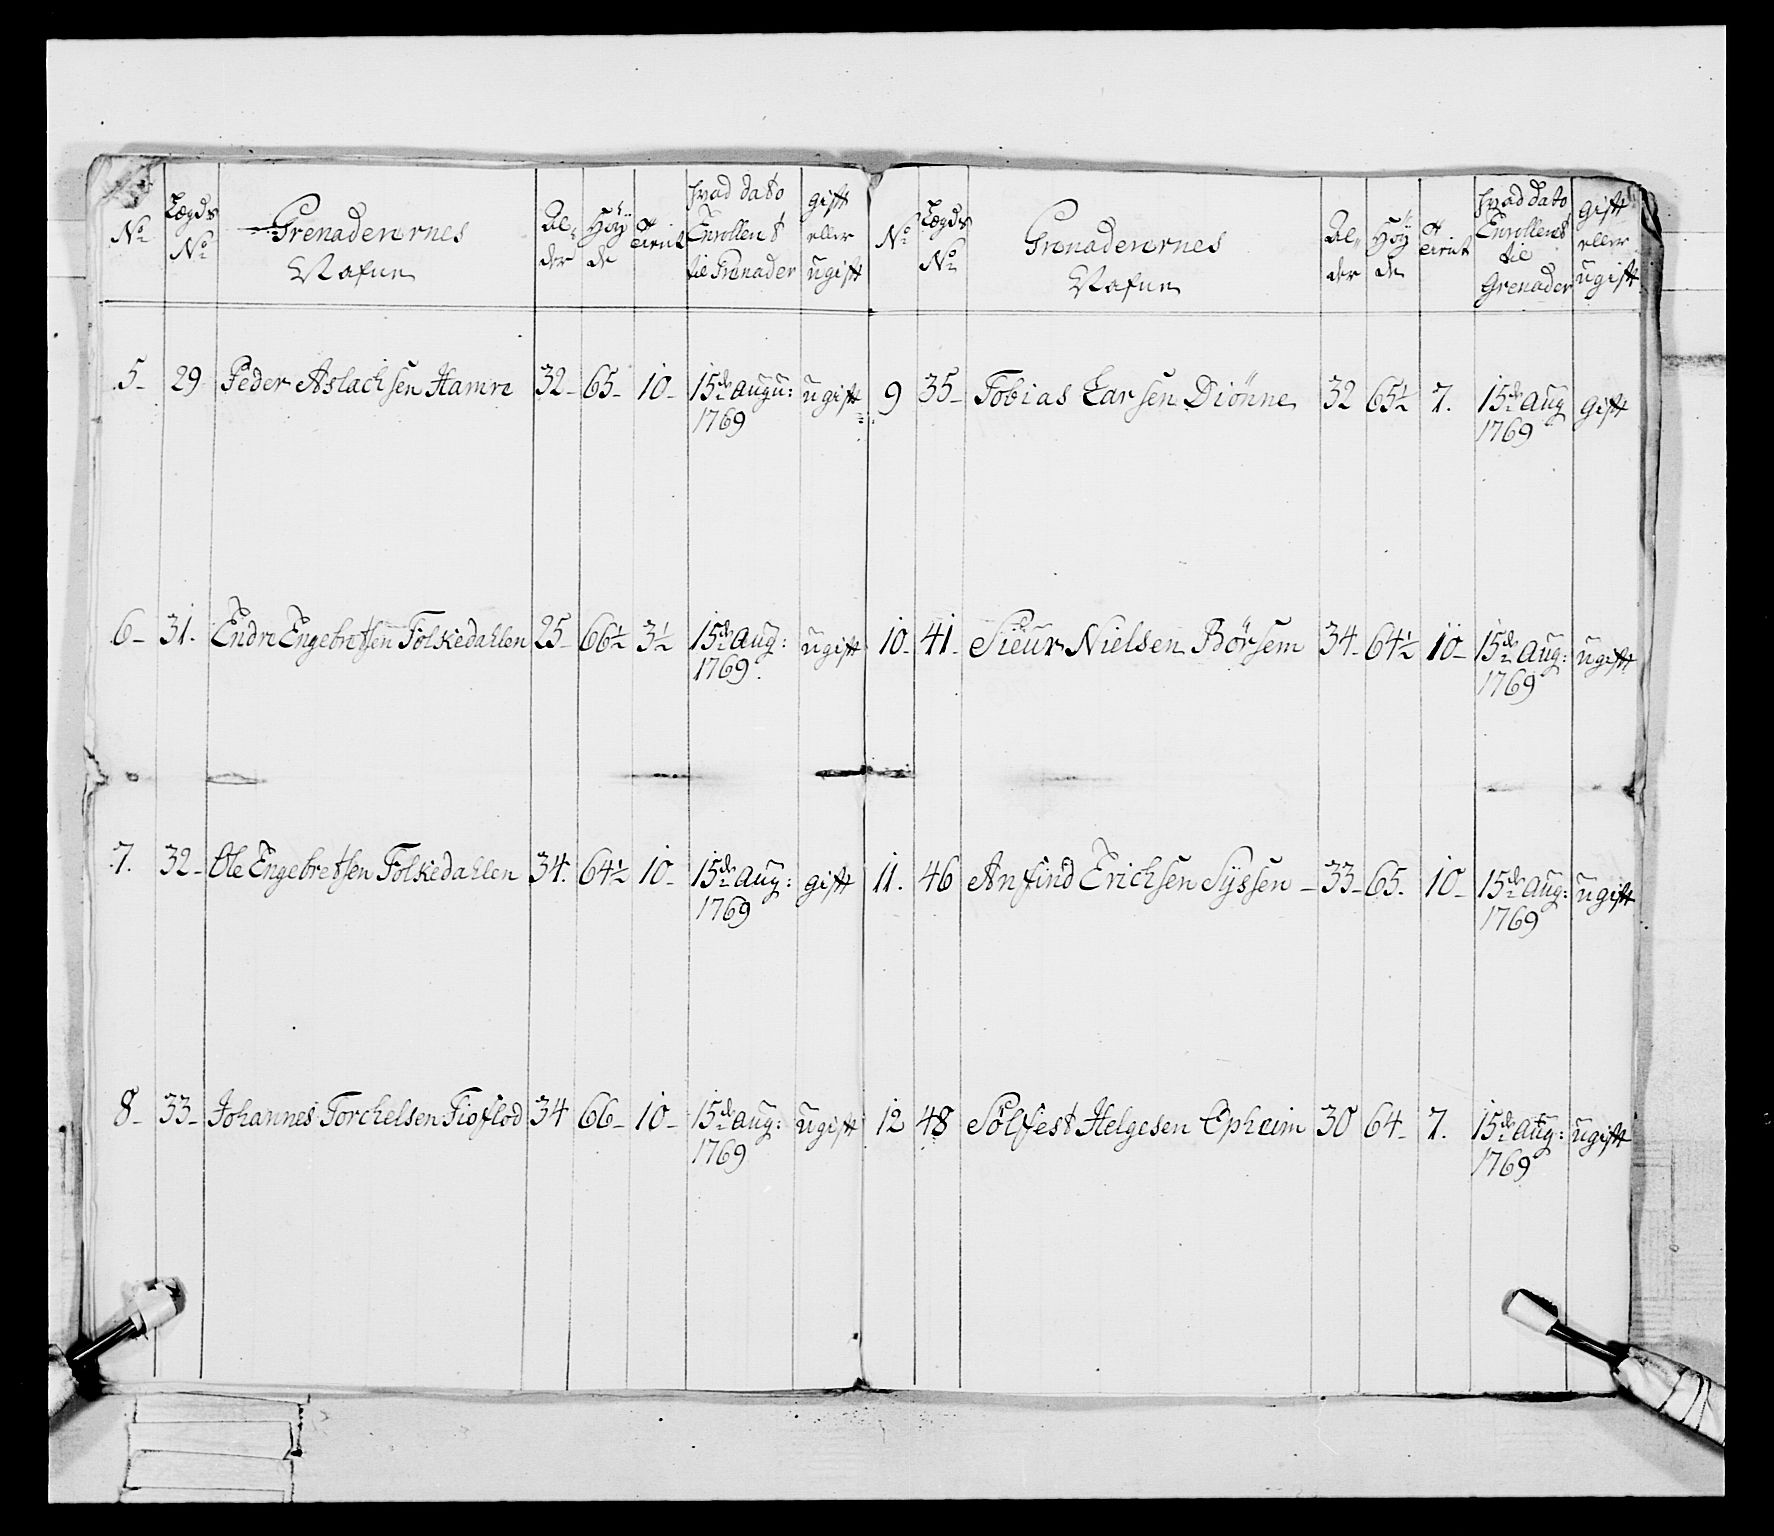 No Lægds No Grenaderernes Nafne Al- der Höy de cirit hvad dato Enrollent til Grenader gift eller ugift
5 29 Peder Aslachsen Hamre 32 65 10 15de augu: 1769 ugift
6 31 Endre Engebretsen Folkedahlen 25 66½ 3½ 15de aug: 1769 ugift
7 32 Ole Engebretsen Folkedahlen 34 64½ 10 15de aug: 1769 gift
8 33 Johannes Torchelsen Fioflod 34 66 10 15de aug: 1769 ugift
No Lægds No Grenaderernes Nafne Al- der Höy de cirit hvad dato Enrollent til Grenader gift eller ugift
9 35 Tobias Larsen Diönne 32 65½ 7. 15de aug 1769 gift
10 41 Sieur Nielsen Börsem 34 64½ 10 15de aug: 1769 ugift
11. 46 Anfind Erichsen Syssen 33 65 10 15de aug: 1769 ugift
12 48 Solfest Helgesen Epheim 30 64 7. 15de aug: 1769 ugift